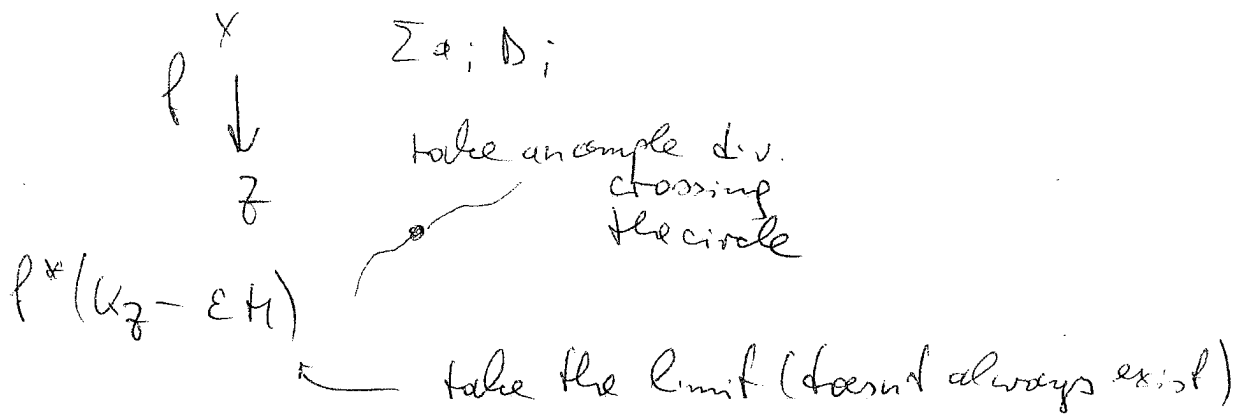 X
Σ a_i D_i
f ↓
take an ample div.
Z
crossing
the circle
f*(K_Z - εH)
take the limit (doesn't always exist)